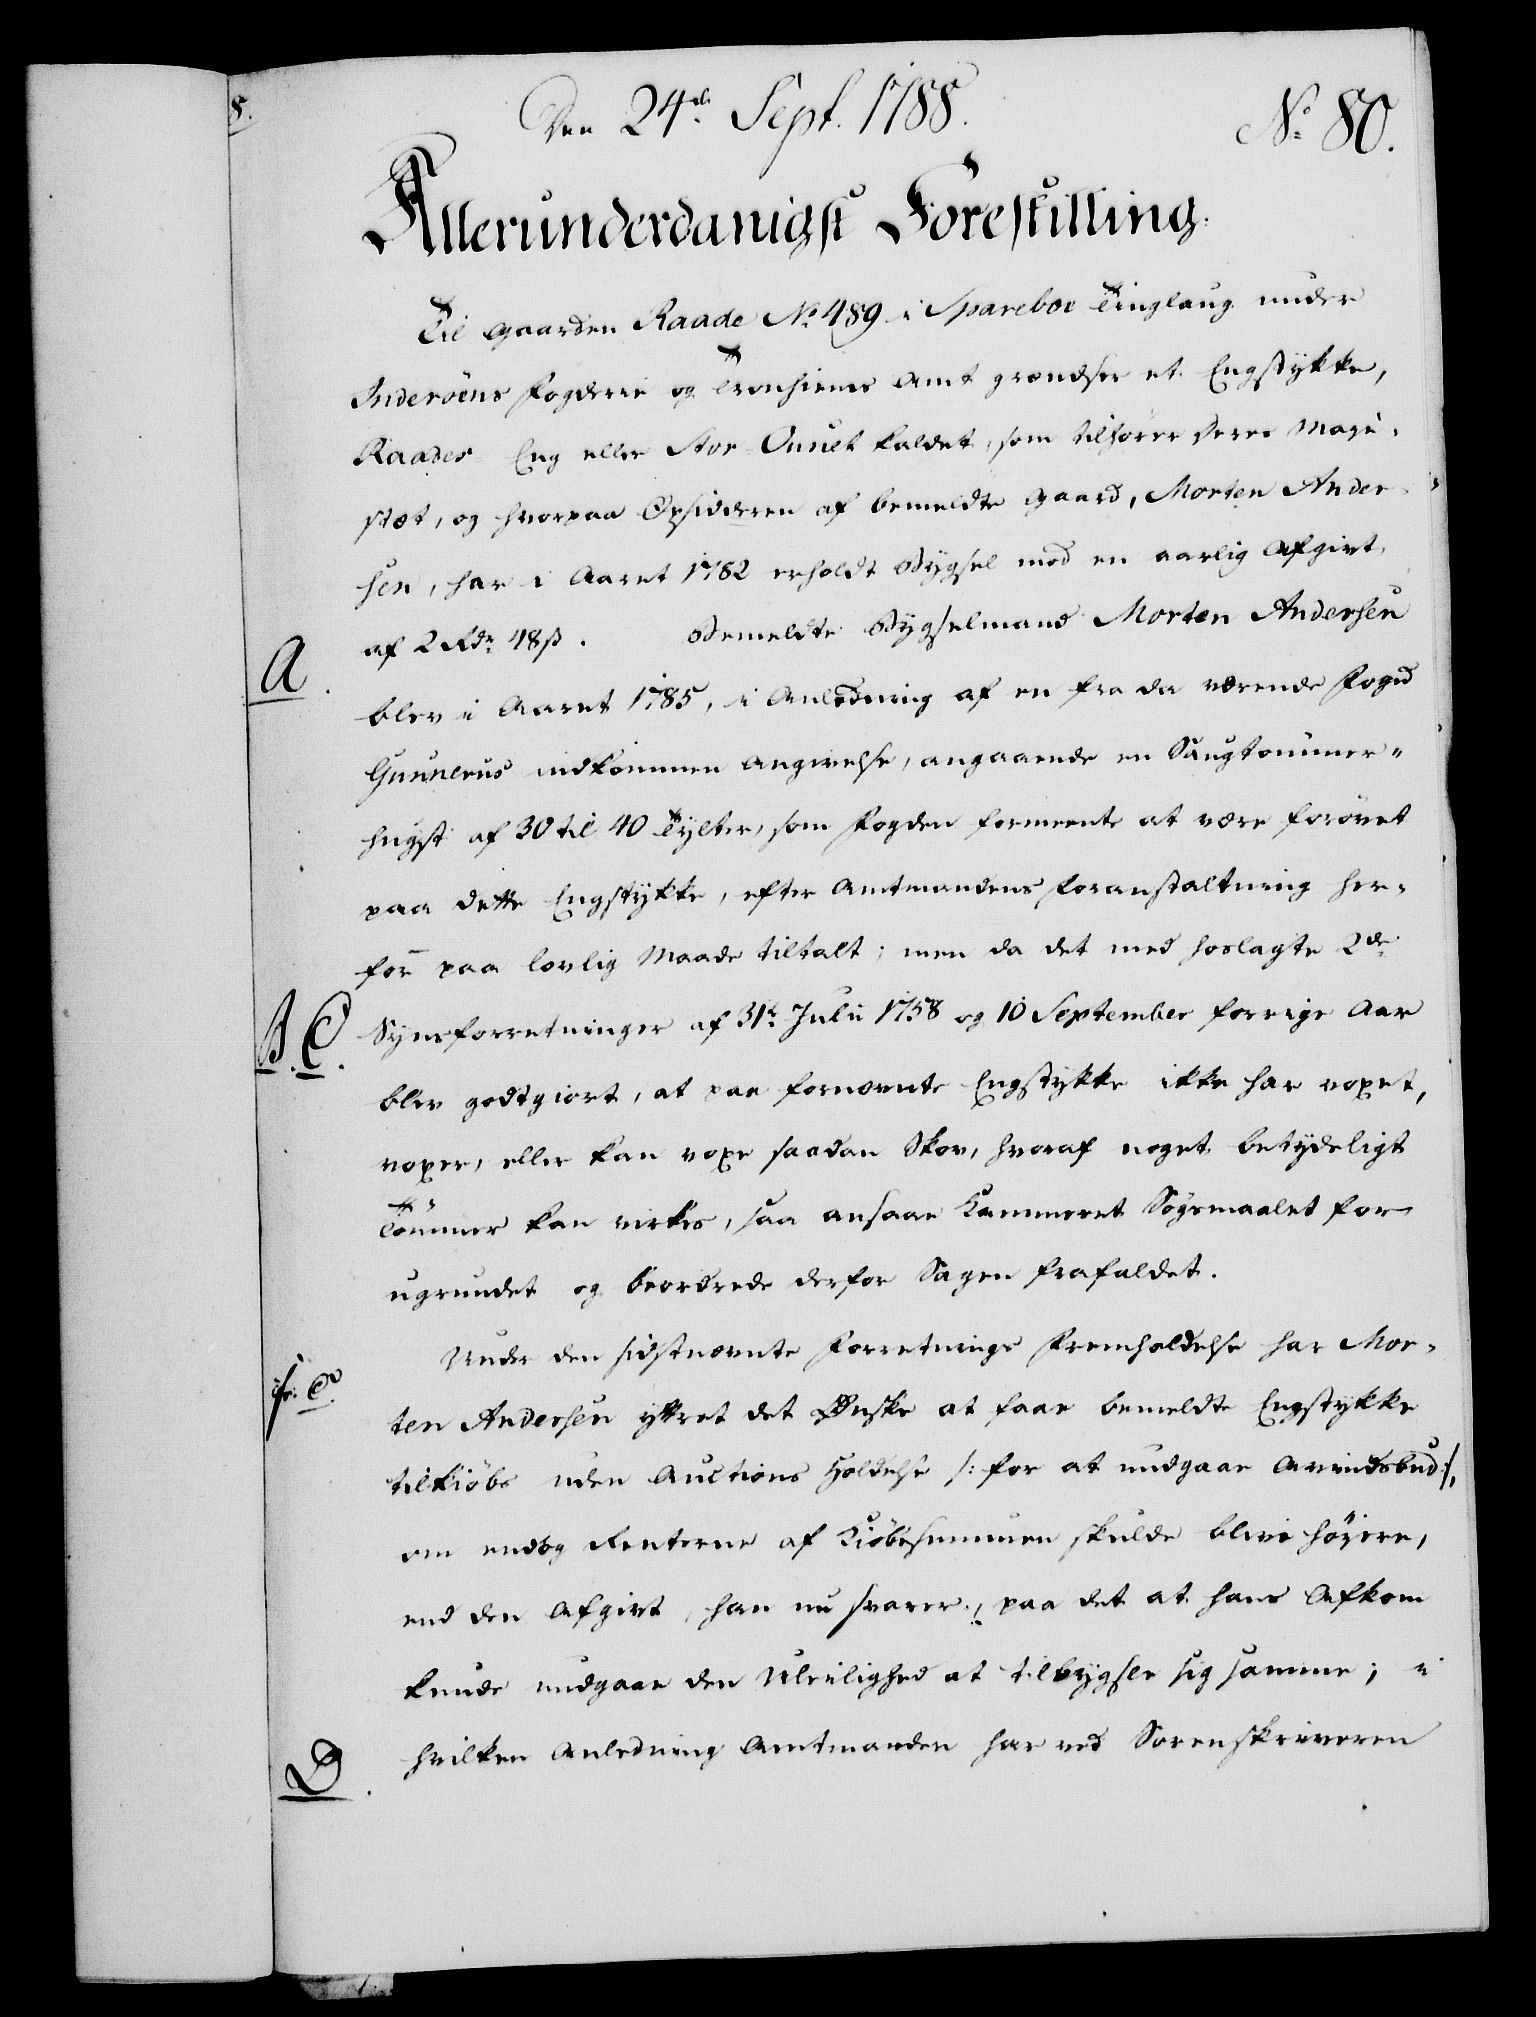 8.
Den 24de Sept. 1788.
No 80.
Allerunderdanigst Forestilling.
Til Gaarden Raade No 489 i Spareboe Tinglaug under
Inderöens Fogderie og Tronhiems Amt grændser et Engstykke,
Raades Eng eller Stor-Onnet kaldet, som tilhører Deres Maje-
stæt, og hvorpaa Opsidderen af bemeldte Gaard, Morten Ander-
sen, har i Aaret 1782 erholdt Bygsel mod en aarlig Afgivt
A.
af 2 Rdr 48 s. Bemeldte Bygselmand Morten Andersen
blev i Aaret 1785, i Anledning af en fra da værende Foged
Gunnerus indkommen Angivelse, angaaende en Saugtømmer-
hugst af 30 til 40 Tylter, som Fogden formeente at være forövet
paa dette Engstykke, efter Amtmandens Foranstaltning her-
for paa lovlig Maade tiltalt; men da det med hoslagte 2de
B. C.
Synsforretninger af 31te Julii 1758 og 10 September forrige Aar
blev godtgiort, at paa fornævnte Engstykke ikke har voxet,
voxer, eller kan voxe saadan Skov, hvoraf noget betydeligt
Tömmer kan virkes, saa ansaae Kammeret Sögsmaalet for
ugrundet og beordrede derfor Sagen frafaldet.
Under den sidstnævnte Forretnings Fremholdelse har Mor-
cfr: C.
ten Andersen yttret det Ønske at faae bemeldte Engstykke
tilkiöbs uden Auctions Holdelse /: for at undgaae Avindsbud :/,
om endog Renterne af Kiöbesummen skulde blive höyere,
end den Afgivt, han nu svarer, paa det at hans Afkom
kunde undgaae den Uleilighed at tilbygsle sig samme; i
D.
hvilken Anledning Amtmanden har ved Sorenskriveren